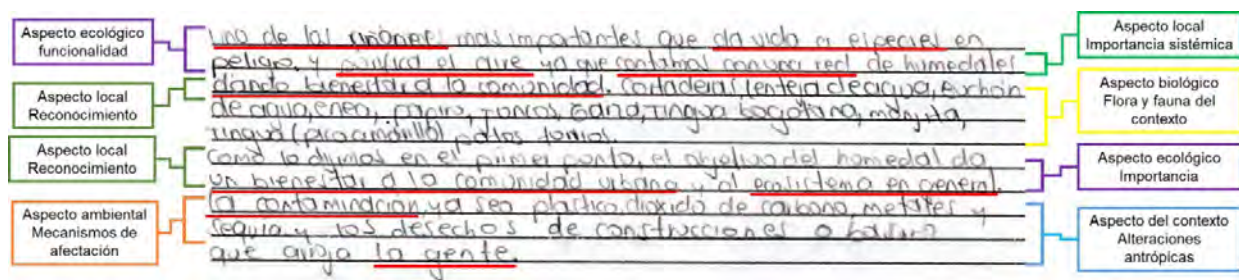 Aspecto ecológico
funcionalidad
Aspecto local
Reconocimiento
Aspecto local
Reconocimiento
Aspecto ambiental
Mecanismos de
afectación
Uno de los riñones mas importantes que da vida a especies en
peligro y purifica el aire ya que contamos con una red de humedales
dando bienestar a la comunidad. Cortaderas, lenteja de agua, buchón
de agua, enea, papiro, juncos, Garza, Tingua bogotana, monjita,
Tingua patos turrios.
Como lo dijimos en el primer punto, el objetivo del humedal da
un bienestar a la comunidad urbana y al ecosistema en general.
La contaminación ya sea plastico, dioxido de carbono, metales y
sequia y los desechos de construcciones o basura
que arroja la gente.
Aspecto local
Importancia sistémica
Aspecto biológico
Flora y fauna del
contexto
Aspecto ecológico
Importancia
Aspecto del contexto
Alteraciones
antrópicas